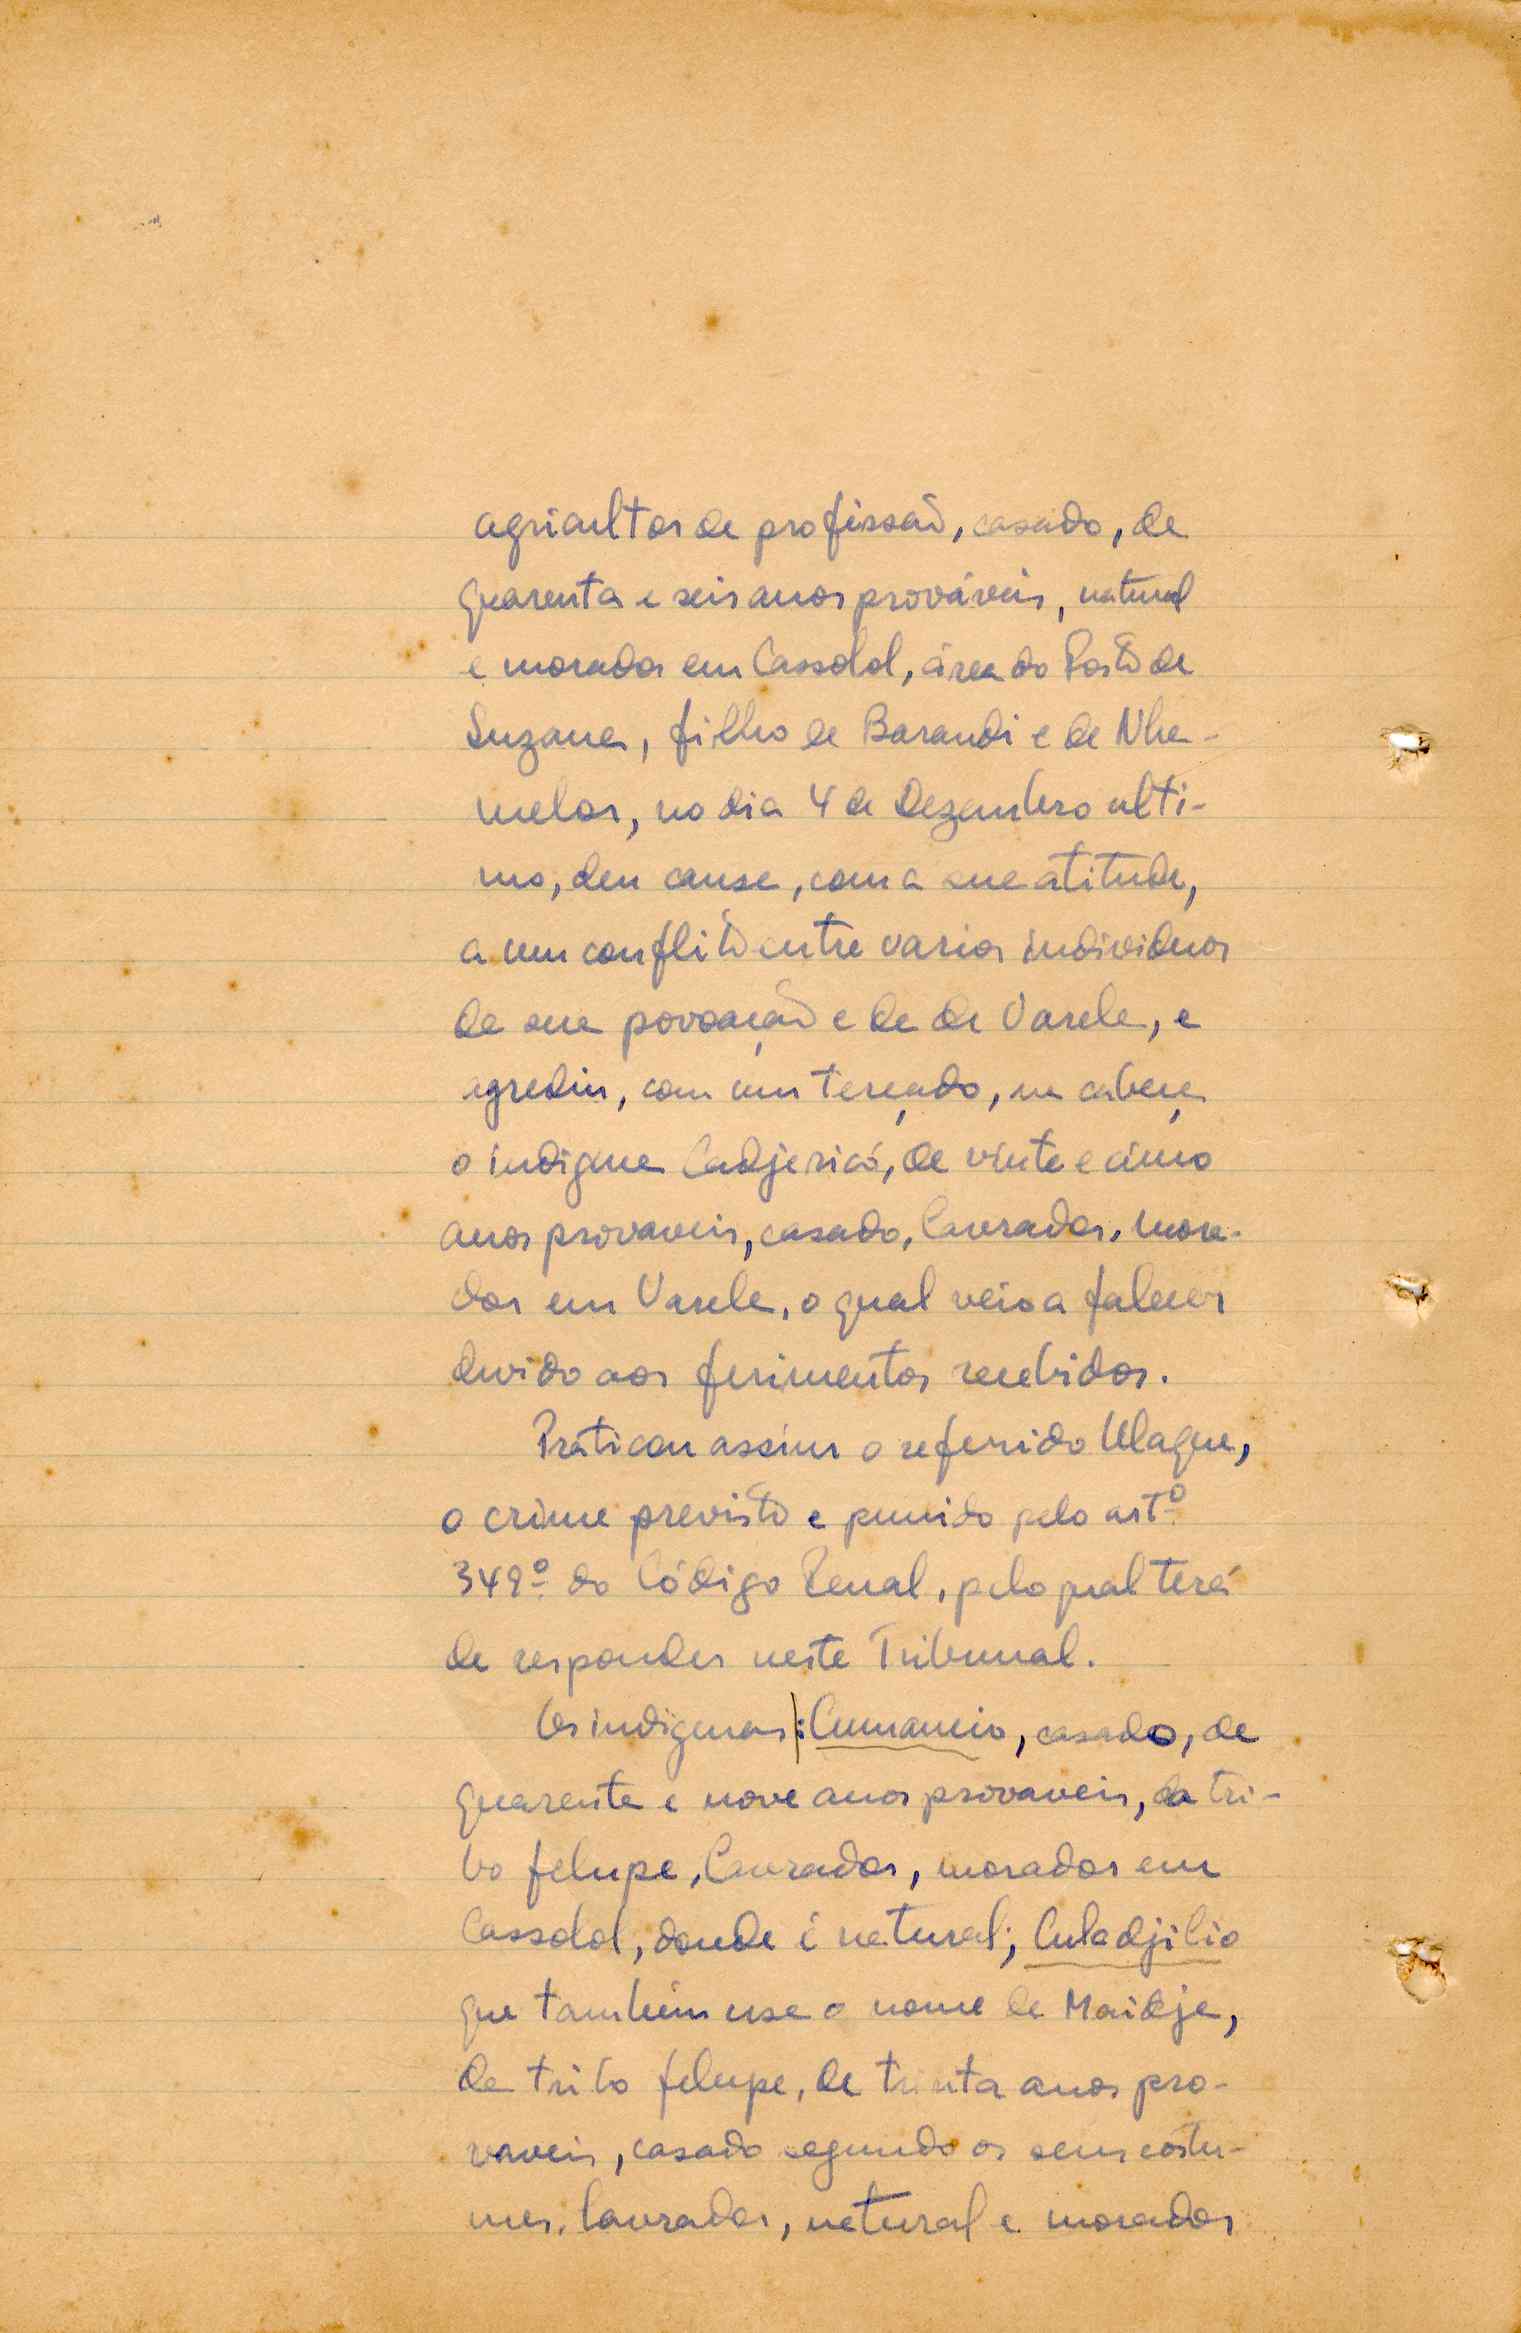 agricultor de profissão, casado, de
quarenta e seis anos prováveis, natural
e morador em Cassolol, área do Posto de
Suzana, filho de Barandi e de Nha-
melor, no dia 4 de Dezembro ulti-
mo, deu causa, com a sua atitude,
a um conflito entre varios individuos
da sua povoação e da de Varela, e
agrediu, com um terçado, na cabeça
o indigena Cadjericó, de vinte e cinco
anos provaveis, casado, lavrador, mora-
dor em Varela, o qual veio a falecer
devido aos ferimentos recebidos.
Praticou assim o referido Ulaque,
o crime previsto e punido pelo artº
349º do Código Penal, pelo qual terá
de responder neste Tribunal.
Os indigenas: Cumancio, casado, de
quarenta e nove anos provaveis, da tri-
bo felupe, lavrador, morador em
Cassolol, donde é natural; Culadjilio
que também usa o nome de Maidje,
da tribo felupe, de trinta anos pro-
vaveis, casado segundo os seus costu-
mes, lavrador, natural e morador